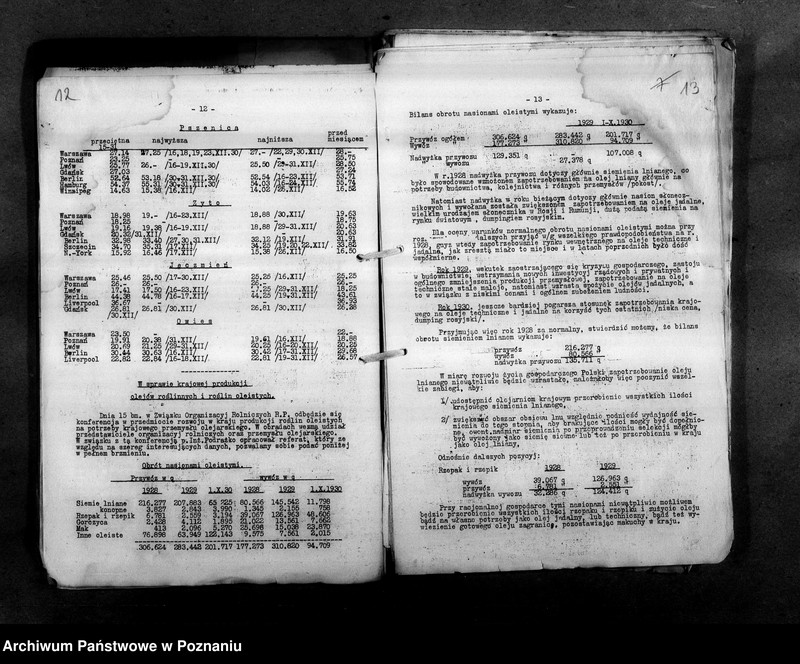 12
- 12 -
Pszenica
przeciętna najwyższa najniższa przed miesiącem
15-31
Warszawa 27.14 27.25 /16,18,19,23,XII.30/ 27.- /22,29,30.XII/ 28.-
Poznań 25.75
Lwów 26.- /16-19.XII.30/ 28.50
Gdańsk 27.03 27.24
Berlin 52.64 53.18 /30-31.XII.30/ 53.71
Hamburg
Winnipeg 14.63 15.38 /16.XII/ 16.52
Żyto
Warszawa 18.98 19.- /16-23.XII/ 18.88 /30.XII/ 19.63
Poznań 18.25 18.75
Lwów 19.16 19.38 /16-19.XII/ 18.88 /29-31.XII/ 20.63
Gdańsk
Berlin 32.98 33.40 /27,30,31.XII/ 32.12 /19.XII/ 31.91
Szczecin 34.70
N.-York 15.92 16.46 /17.XII/ 15.38 /26.XII/ 16.50
Jęczmień
Warszawa 25.46 25.50 /17-30.XII/ 25.25 /16.XII/ 25.25
Poznań 26.- 26.-
Lwów 17.41 17.50 /16-23.XII/ 17.25 /29-31.XII/ 18.25
Berlin 44.38 44.78 /16-17.XII/ 44.25 /19-31.XII/ 43.61
Liverpool 36.67 36.93
Gdańsk 26.81 26.81 /30.XII/ 26.81 /30.XII/ 26.38
/30.XII/
Owies
Warszawa 23.50 22.-
Poznań 19.91 20.38 /31.XII/ /16.XII/ 18.88
Lwów 20.69 21.25 /29-31.XII/ 20.25 /16-20.XII/ 20.25
Berlin 30.44 30.63 /16.XII/ 30.42 /17-31.XII/ 29.68
Liverpool 22.82 22.84 /16-18.XII/ 22.81 /19-31.XII/ 26.57
W sprawie krajowej produkcji
olejów roślinnych i roślin oleistych.
Dnia 15 bm. w Związku Organizacyj Rolniczych R.P. odbędzie się
konferencja w przedmiocie rozwoju w kraju produkcji roślin oleistych
na potrzeby krajowego przemysłu olejarskiego. W obradach wezmą udział
przedstawiciele organizacyj rolniczych oraz przemysłu olejarskiego.
W związku z tą konferencją p. Inż. Podrażko opracował referat, który ze
względu na szereg interesujących danych, pozwalamy sobie podać poniżej
w pełnem brzmieniu.
Obrót nasionami oleistymi.
Przywóz w q wywóz w q
1928 1929 1.X.30 1928 1929 1.X.1930
Siemie lniane 216.277 207.883 65.225 80.566 145.542 11.798
konopne 3.827 2.843 3.990 1.345 2.155 758
Rzepak i rzepik 6.781 2.559 3.194 39.067 126.963 48.606
Gorczyca 2.428 4.112 1.895 21.022 13.561 7.662
Mak 413 2.096 5.270 25.698 15.038 23.870
Inne oleiste 76.898 63.949 122.143 9.575 7.561 2.015
306.624 283.442 201.717 177.273 310.820 94.709
13
- 13 -
Bilans obrotu nasionami oleistymi wykazuje:
1929 I-X.1930
Przywóz ogółem 306.624 q 283.442 q 201.717 q
Wywóz 177.273 q 310.820 q 94.709 q
Nadwyżka przywozu 129.351 q 107.008 q
wywozu 27.378 q
W r.1928 nadwyżka przywozu dotyczy głównie siemienia lnianego, co
było spowodowane wzmożonem zapotrzebowaniem na olej lniany głównie na
potrzeby budownictwa, kolejnictwa i różnych przemysłów /pokost/.
Natomiast nadwyżka w roku bieżącym dotyczy głównie nasion słonecz-
nikowych i wywołana została zwiększonem zapotrzebowaniem na oleje jadalne,
wielkim urodzajem słonecznika w Rosji i Rumunji, dużą podażą siemienia na
rynku światowym, dumpingiem rosyjskim.
Dla oceny warunków normalnego obrotu nasionami oleistymi można przy
dalszych przyjąć w/g wszelkiego prawdopodobieństwa na r.
1928, gdyż wtedy zapotrzebowanie rynku wewnętrznego na oleje techniczne i
jadalne, jak zresztą miało to miejsce i w latach poprzednich było dość
współmierne.
Rok 1929, wskutek zaostrzającego się kryzysu gospodarczego, zastoju
w budownictwie, wstrzymania nowych inwestycyj rządowych i prywatnych i
ogólnego zmniejszenia produkcji przemysłowej, zapotrzebowanie na oleje
techniczne stale maleje, natomiast wzrasta spożycie olejów jadalnych, a
to w związku z niskimi cenami i ogólnem zubożeniem ludności.
Rok 1930, jeszcze bardziej pogarsza stosunek zapotrzebowania krajo-
wego na oleje techniczne i jadalne na korzyść tych ostatnich /niska cena,
dumping rosyjski/.
Przyjmując więc rok 1928 za normalny, stwierdzić możemy, że bilans
obrotu siemieniem lnianem wykazuje:
przywóz 216.277 q
wywóz 80.566 q
nadwyżka przywozu 135.711 q
W miarę rozwoju życia gospodarczego Polski zapotrzebowanie oleju
lnianego niewątpliwie będzie wzrastało, należałoby więc poczynić wszel-
kie zabiegi, aby:
1/ udostępnić olejarniom krajowym przerobienie wszystkich ilości
krajowego siemienia lnianego,
2/ zwiększyć obszar obsiewu lnu względnie podnieść wydajność sie-
mienia do tego stopnia, aby brakujące ilości mogły być dopełnio-
ne, ewent. nadmiar siemienia po przeprowadzeniu selekcji mógłby
być wywożony jako siemię siewne lub też po przerobieniu w kraju
jako olej lniany.
Odnośnie dalszych pozycyj:
Rzepak i rzepik 1928 1929
wywóz 39.067 q 126.963 q
przywóz 6.781 q
nadwyżka wywozu 32.286 q 124.412 q
Przy racjonalnej gospodarce tymi nasionami niewątpliwie możliwem
będzie przerobienie wszystkich ilości rzepaku i rzepiku i zużycie oleju
bądź na własne potrzeby jako olej jadalny, lub techniczny, bądź też wy-
wiezienie gotowego oleju zagranicę, pozostawiając makuchy w kraju.
Archiwum Państwowe w Poznaniu